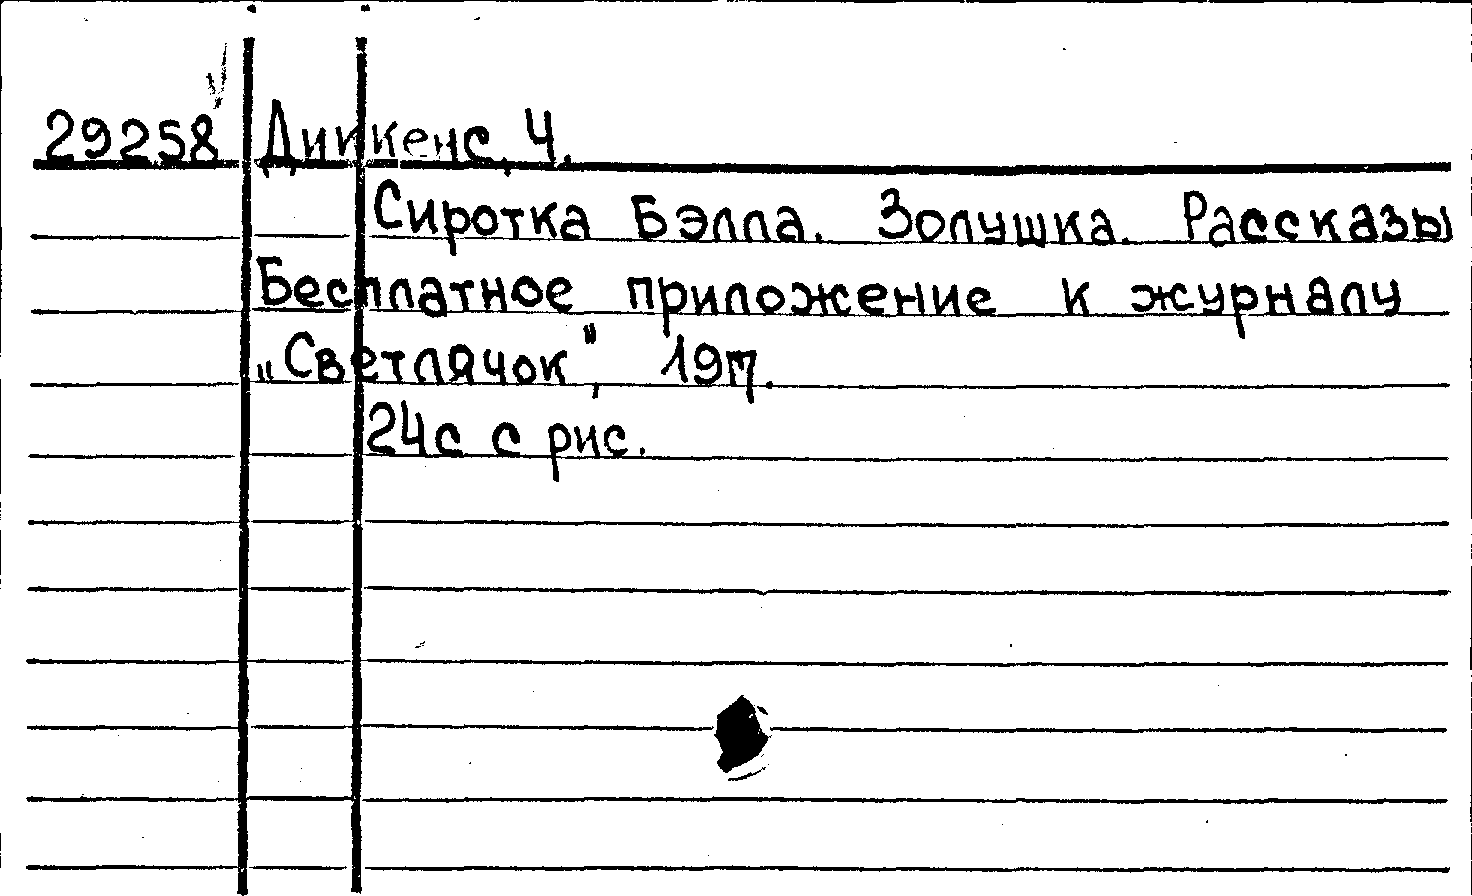 29258 Диккенс, Ч.
Сиротка Бэлла. Золушка. Рассказы
Бесплатное приложение к журналу
„Светлячок", 19
24с с рис.